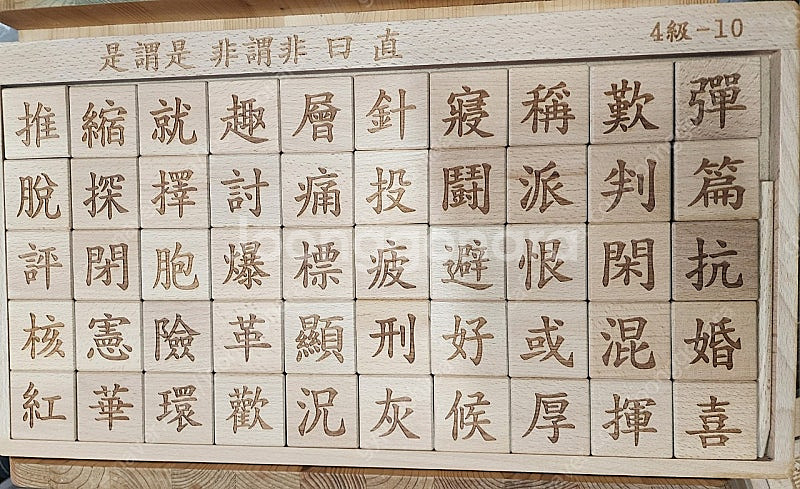 是謂是 非謂非 曰 直 4級-10
推 縮 就 趣 層 針 寢 稱 歎 彈
脫 探 擇 討 痛 投 鬪 派 判 篇
評 閉 胞 爆 標 疲 避 恨 閑 抗
核 憲 險 革 顯 刑 好 或 混 婚
紅 華 環 歡 況 灰 候 厚 揮 喜